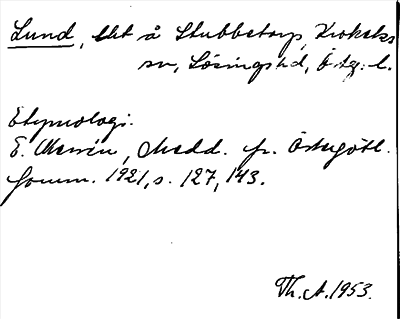 Lund, lht å Stubbetorp, Krokeks
sn, Lösings hd, Östg. l.
Etymologi.
E. Norrén, Medd. fr. Östergötl.
fornm. 1921, s. 127, 143.
Th. A. 1953.